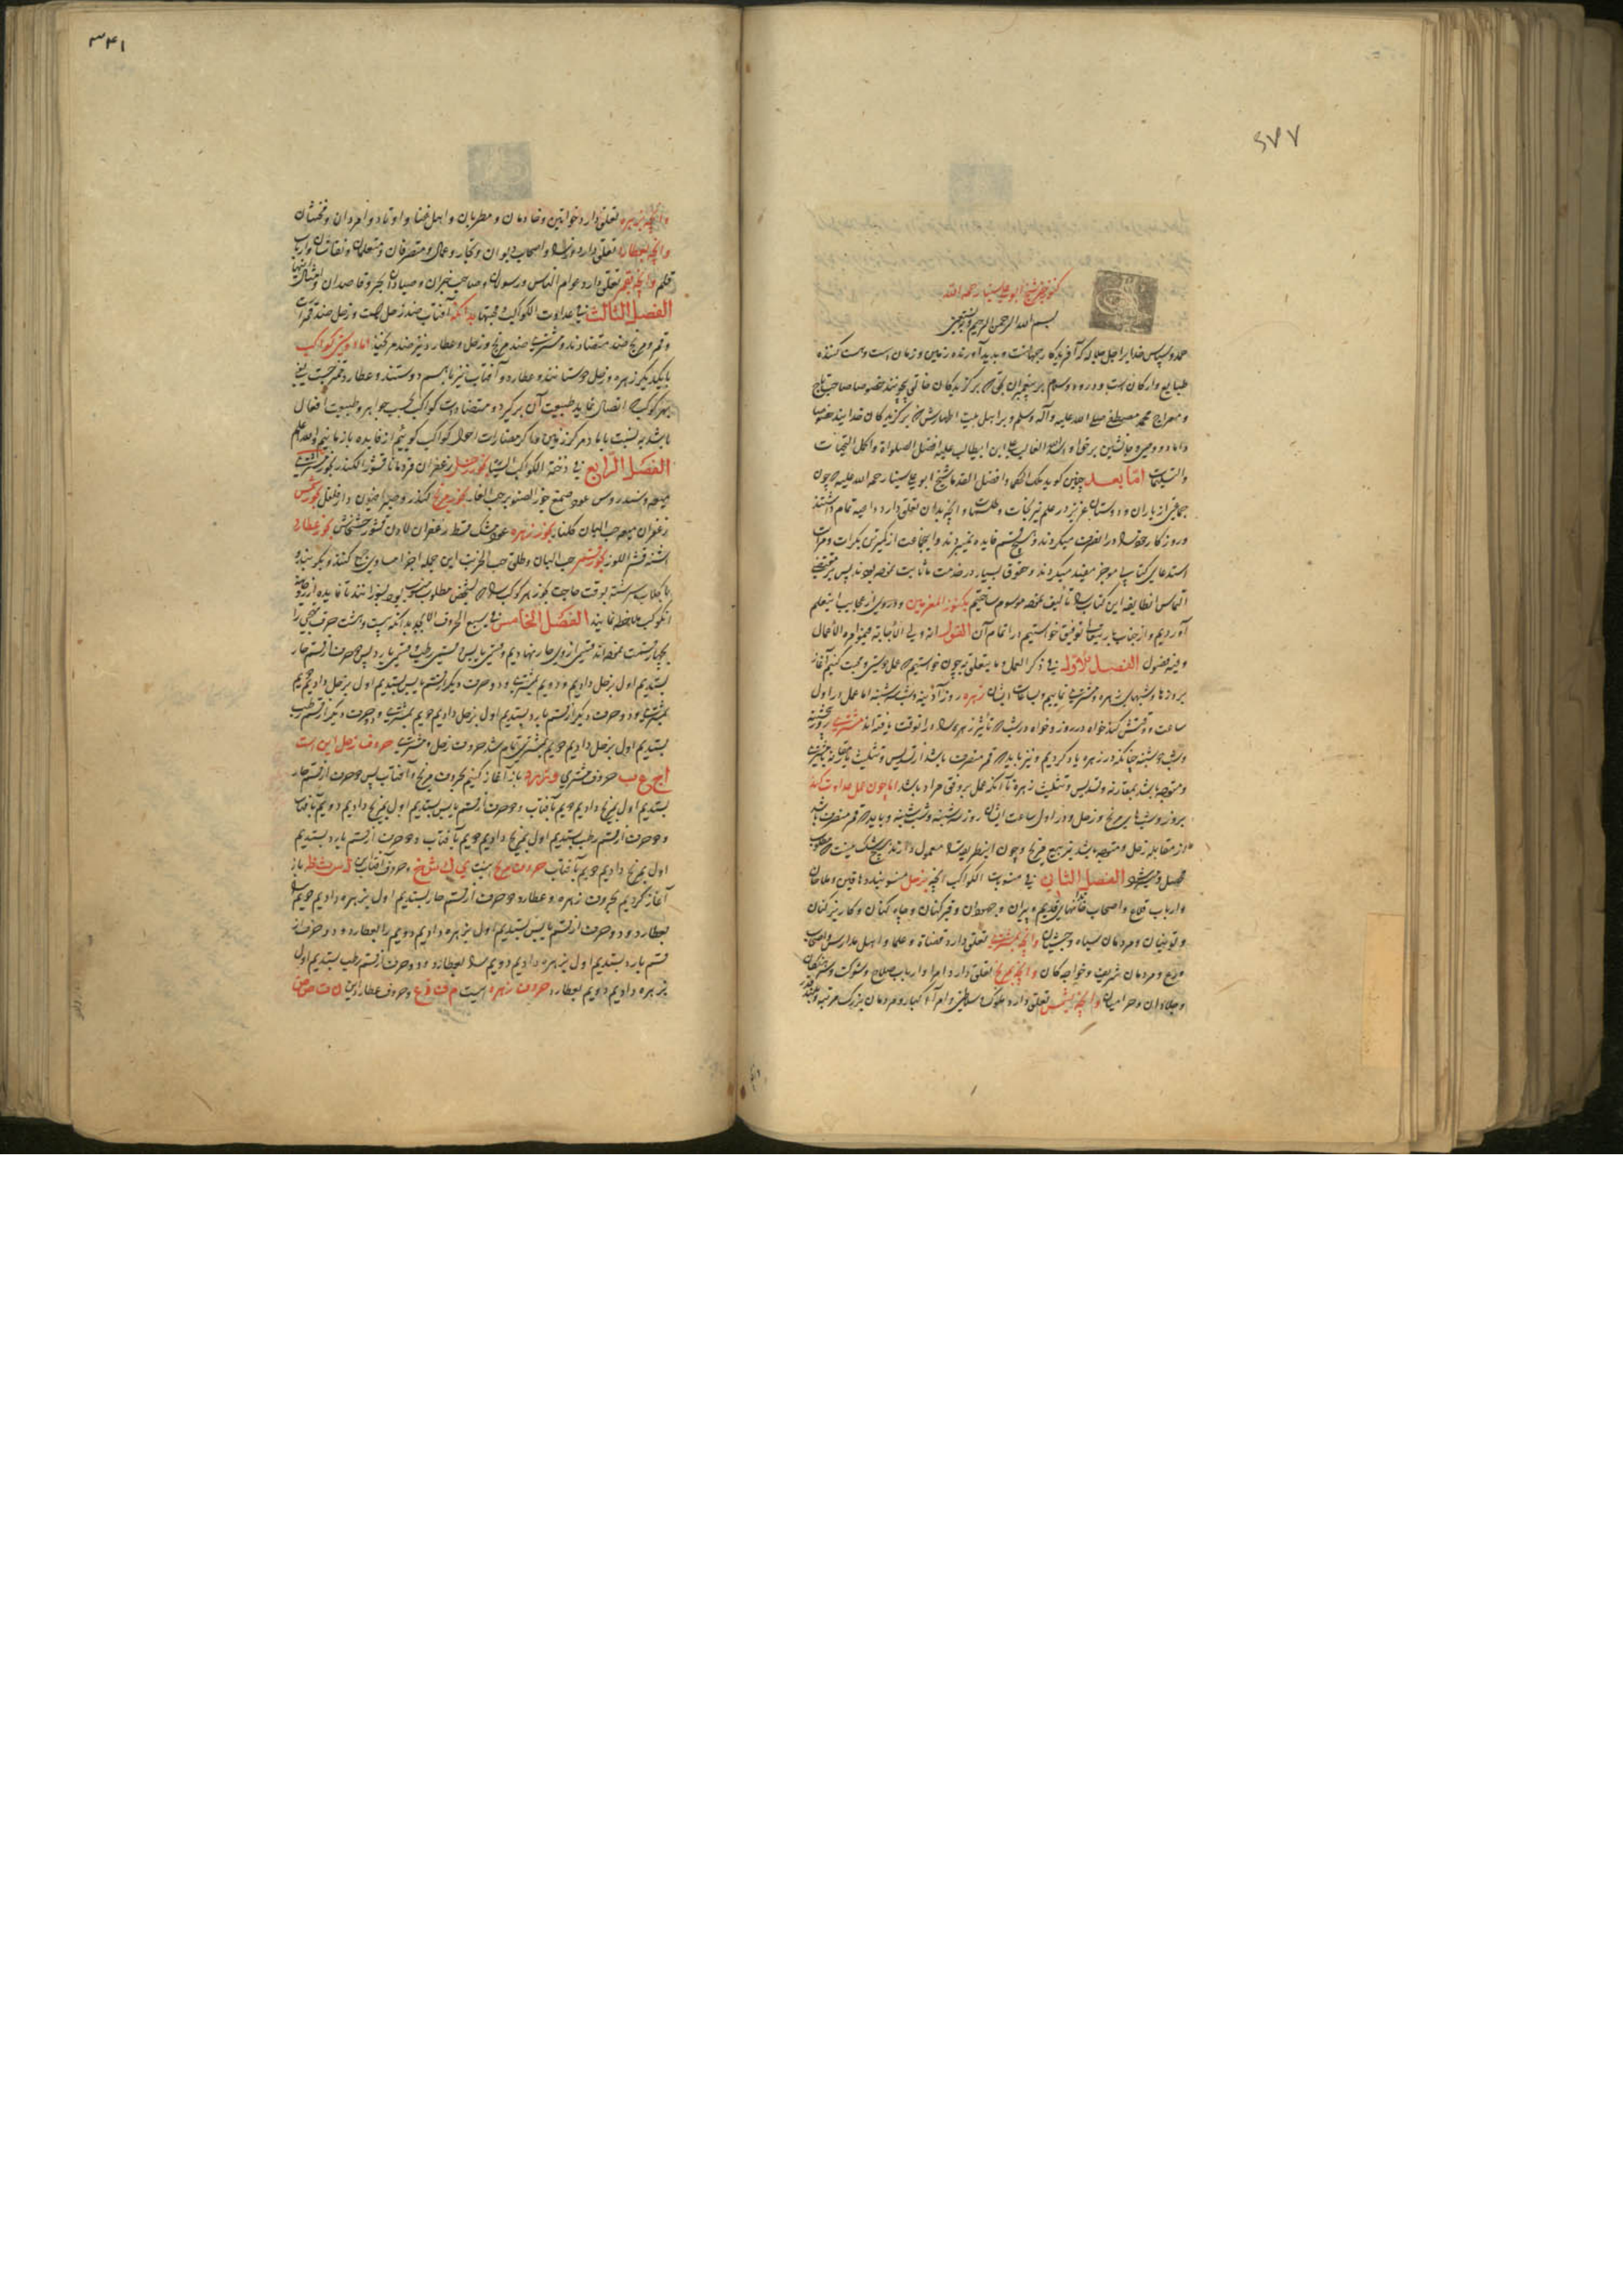 کنوز شیخ ابو علی سینا رحمه الله
بسم الله الرحمن الرحیم وبه نستعین
حمد و سپاس خدایرا جل جلاله که آفریدکار جهانست و پدید آورنده زمین و زمان است و هست کننده
طبایع و ارکان است و درود و سلام بر پیغمبران بر کزیدکان خصوصا صاحب تاج
و معراج محمد مصطفی صلی الله علیه وآله وسلم و بر اهل بیت اطهارش که بر کزیدکان خدایند خصوصا
داماد و وصی و جانشین بر حق او اسد الله الغالب علی ابن ابیطالب علیه افضل الصلوات و اکمل التحیات
والتسلیمات اما بعد چنین کوید ملک الحکما و افضل القدما شیخ ابو علی سینا رحمه الله علیه که چون
جماعتی از یاران و دوستان عزیز در علم نیرنجات و طلسمات و آنچه بدان تعلق دارد داعیه تمام داشتند
و روزکار خود را در آن صرف میکردند و هیچ قسم فایده نمیبردند و اینجماعت از کمترین بکرات و مرات
استدعای کتابی موجز مفید میکردند و حقوق بسیار در خدمت ما ثابت بودند پس بر مقتضی
التماس انطایفه این کتاب را تألیف نموده موسوم ساختیم بکنوز المعزمین و در وی از عجایب این علم
آوردیم و از جناب باری توفیق خواستیم در اتمام آن القول انه ولی الاجابة
وفیه فصول الفصل الاول فی ذکر العمل و ما یتعلق به چون خواستیم که عمل دوستی و محبت کنیم آغاز
بروزها و شبهای زهره و مشتری نماییم و ساعات ایشان زهره روز آدینه و شب سه شنبه اما عمل در اول
ساعت و وقتش کند خواه در روز و خواه در شب که تأثیر زهره را در انوقت یافته اند مشتری روز پنجشنبه
و شب دوشنبه چنانکه در زهره یاد کردیم و نیز باید که قمر منصرف باشد از تسدیس و تثلیث
و متوجه باشد بمقارنه و تسدیس و تثلیث زهره تا آنکه عمل بر وفق مراد باشد اما چون عمل عداوت کند
بروز و شبهای مریخ و زحل و در اول ساعت ایشان روز سه شنبه و شب شنبه و باید که قمر منصرف باشد
از مقابله زحل و متوجه باشد بتربیع مریخ و چون اینطریق را معمول دارند هیچ شک نیست که مطلوب
محصل میشود الفصل الثانی فی منسوبات الکواکب آنچه بزحل منسوبند دهاقین و ملاحان
و ارباب قلاع و اصحاب خانهای قدیم و پیران و جهودان و قیر کنان و چاه کنان و کاریز کنان
و مردمان سیاه و حبشیان و آنچه بمشتری تعلق دارد قضاة و علما و اهل مدارس و اصحاب
ورع و مردمان شریف و خواجه کان و آنچه بمریخ تعلق دارد امرا و ارباب سلاح و شوکت و سرهنگان
و جلادان و حرامیان و آنچه بشمس تعلق دارد ملوک و سلاطین و امرآء کبار و مردمان بزرک مرتبه
۳۴۱
وانچه بزهره تعلق دارد خواتین و خادمان و مطربان و اهل غنا و اوتاد و امردان و مخنثان
وانچه بعطارد تعلق دارد وزرا و اصحاب دیوان و تجار و عمال و متصرفان و متعلمان و نقاشان و ارباب
قلم وانچه بقمر تعلق دارد عوام الناس و رسولان و صاحب خبران و صیادان بحر و قاصدان و امثال اینها
الفصل الثالث فی عداوت الکواکب و محبتها بدانکه آفتاب ضد زحل است و زحل ضد قمر است
و قمر و مریخ ضد متضادند و مشتری ضد مریخ و زحل و عطارد نیز ضد مریخند اما دوستی کواکب
با یکدیکر زهره و زحل دوستانند و عطارد و آفتاب نیز با هم دوستند و عطارد
بهر کوکب که اتصال نماید طبیعت آن بر کیرد و متضادات کواکب بحسب جواهر و طبیعت افعال
باشد نه بنسبت با مرکز زمین و اکر متضادات احوال کواکب کوییم از فایده باز مانیم والله اعلم
الفصل الرابع فی دخنة الکواکب السبعة بخور زحل زعفران قردمانا قشور الکندر بخور مشتری
میعه و سندروس عود صمغ جوز الصنوبر حب الغار بخور مریخ کندر و صبر افیون دارفلفل بخور شمس
زعفران میعه حب البان کلنار بخور زهره عود مشک قسط زعفران لادن قشور خشخاش بخور عطارد
اشنه قشر اللوز بخور قمر حب البان و طلق این جمله اجزا مساوی سحق کنند و بکیرند و
با کلاب سرشته بوقت حاجت بخور هر کوکب را که بشخص مطلوب منسوب بود بسوزانند تا فایده
انکوکب ملاحظه نمایند الفصل الخامس فی الحروف الابجد بدانکه بیست و هشت حرف تهجی را
بچهار قسمت نموده اند قسمی از وی حار نهادیم و قسمی یابس و قسمی رطب و قسمی بارد پس دو حرف از قسم حار
بستدیم اول بزحل دادیم و دویم بمشتری و دو حرف دیکر از قسم یابس بستدیم اول بزحل دادیم دویم
بمشتری و دو حرف دیکر از قسم بارد بستدیم اول بزحل دادیم دویم بمشتری و دو حرف دیکر از قسم رطب
بستدیم اول بزحل دادیم دویم بمشتری تمام شد حروف زحل و مشتری حروف زحل این است
حروف مشتری باز آغاز کنیم بحروف مریخ و آفتاب پس دو حرف از قسم حار
بستدیم اول بمریخ دادیم دویم بآفتاب و دو حرف از قسم یابس بستدیم اول بمریخ دادیم دویم بآفتاب
و دو حرف از قسم رطب بستدیم اول بمریخ دادیم دویم بآفتاب و دو حرف از قسم بارد بستدیم
اول بمریخ دادیم دویم بآفتاب حروف مریخ اینست و حروف آفتاب باز
آغاز کردیم بحروف زهره و عطارد دو حرف از قسم حار بستدیم اول بزهره دادیم دویم
بعطارد و دو حرف از قسم یابس بستدیم اول بزهره دادیم دویم را بعطارد و دو حرف از
قسم بارد بستدیم اول بزهره دادیم دویم را بعطارد و دو حرف از قسم رطب بستدیم اول
بزهره دادیم دویم بعطارد حروف زهره اینست و حروف عطارد